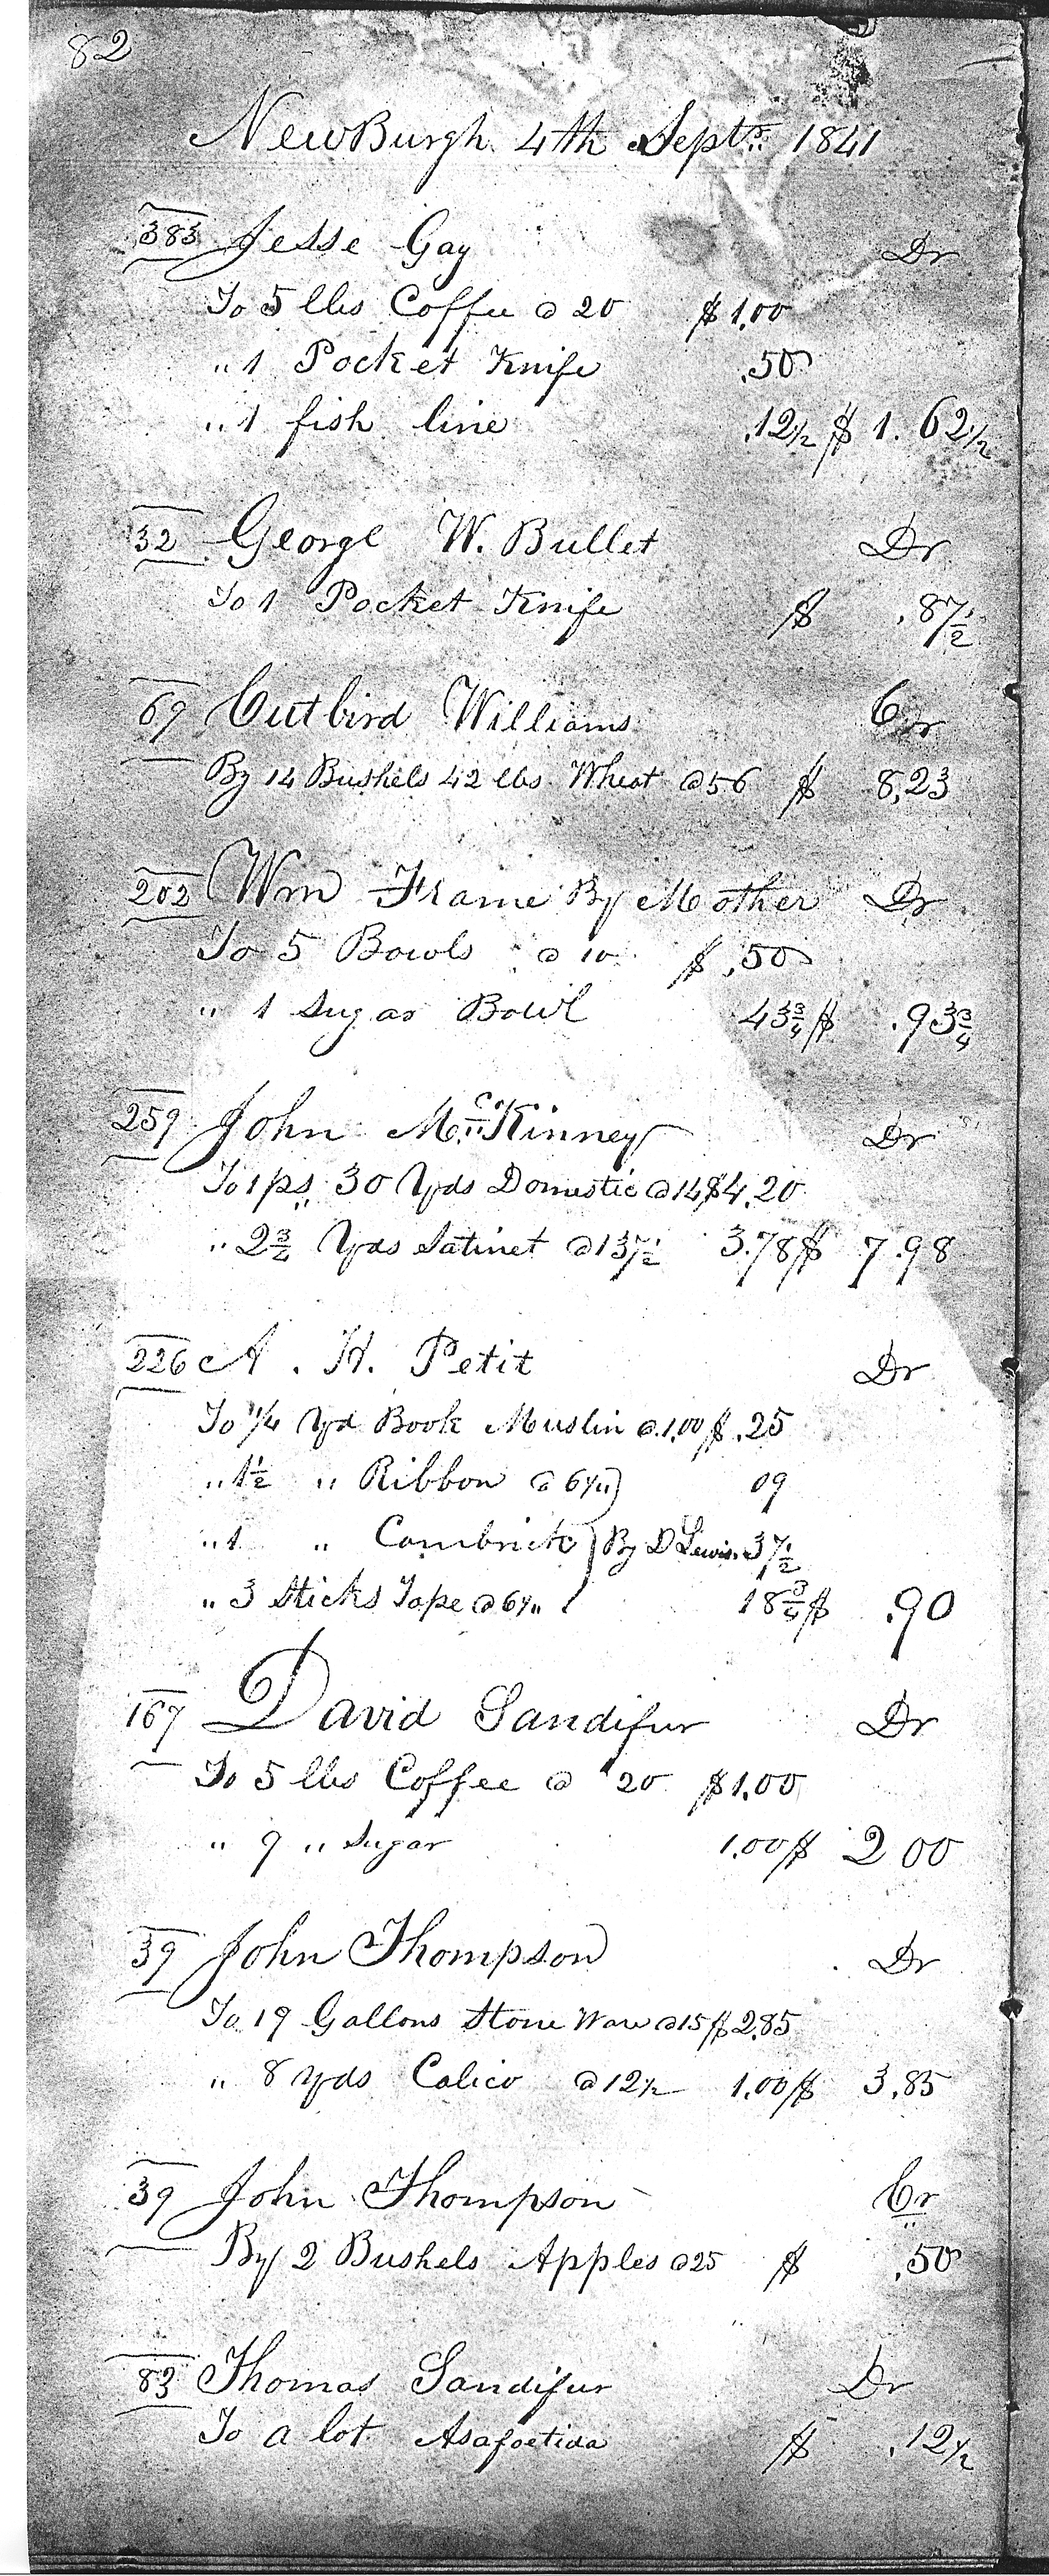 82
NewBurgh 4th Septr. 1841
383 Jesse Gay Dr
To 5 lbs Coffee @ 20 $ 1,00
" 1 Pocket Knife .50
" 1 fish line .12½ $ 1.62½
32 George W. Bullet Dr
To 1 Pocket Knife $ .87½
69 Cutbird Williams Cr
By 14 Bushels 42 lbs Wheat @ 56 $ 8,23
202 Wm Frame By Mother Dr
To 5 Bowls @ 10 $ .50
" 1 Sugar Bowl 43¾ $ .93¾
259 John McKinney Dr
To 1 ps 30 Yds Domestic @ 14 $4.20
" 2¾ Yds Satinet @ 137½ 3.78 $ 7.98
226 A. H. Petit Dr
To 1/4 Yd Book Muslin @ 1,00 $ .25
" 1½ " Ribbon @ 6¼ 09
" 1 " Cambrick By D Lewis .37½
" 3 Sticks Tape @ 6¼ 18¾ $ .90
167 David Sandifur Dr
To 5 lbs Coffee @ 20 $1.00
" 9 " Sugar 1.00 $ 2 00
39 John Thompson Dr
To 19 Gallons Stone Ware @ 15 $ 2.85
" 8 yds Calico @ 12½ 1.00 $ 3.85
39 John Thompson Cr
By 2 Bushels Apples @ 25 $ .50
83 Thomas Sandifur Dr
To a lot Asafoetida $ .12½